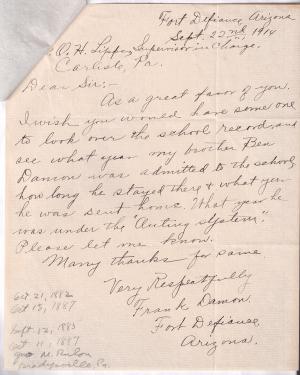 Fort Defiance, Arizona
Sept. 22nd, 1914
O. H. Lipps, Supervisor in Charge.
Carlisle, Pa.
Dear Sir:—
As a great favor of you.
I wish you would have some one
to look over the school record, and
see what year my brother Ben
Damon was admitted to the school,
how long he stayed there & what year
he was sent home. What year he
was under the "Outing System".
Please let me know.
Many thanks for same
Very Respectfully
Frank Damon.
Fort Defiance,
Arizona.
Oct 21, 1882
Oct 15, 1887
Sept. 12, 1883
Oct 11, 1887
M.
Pa.